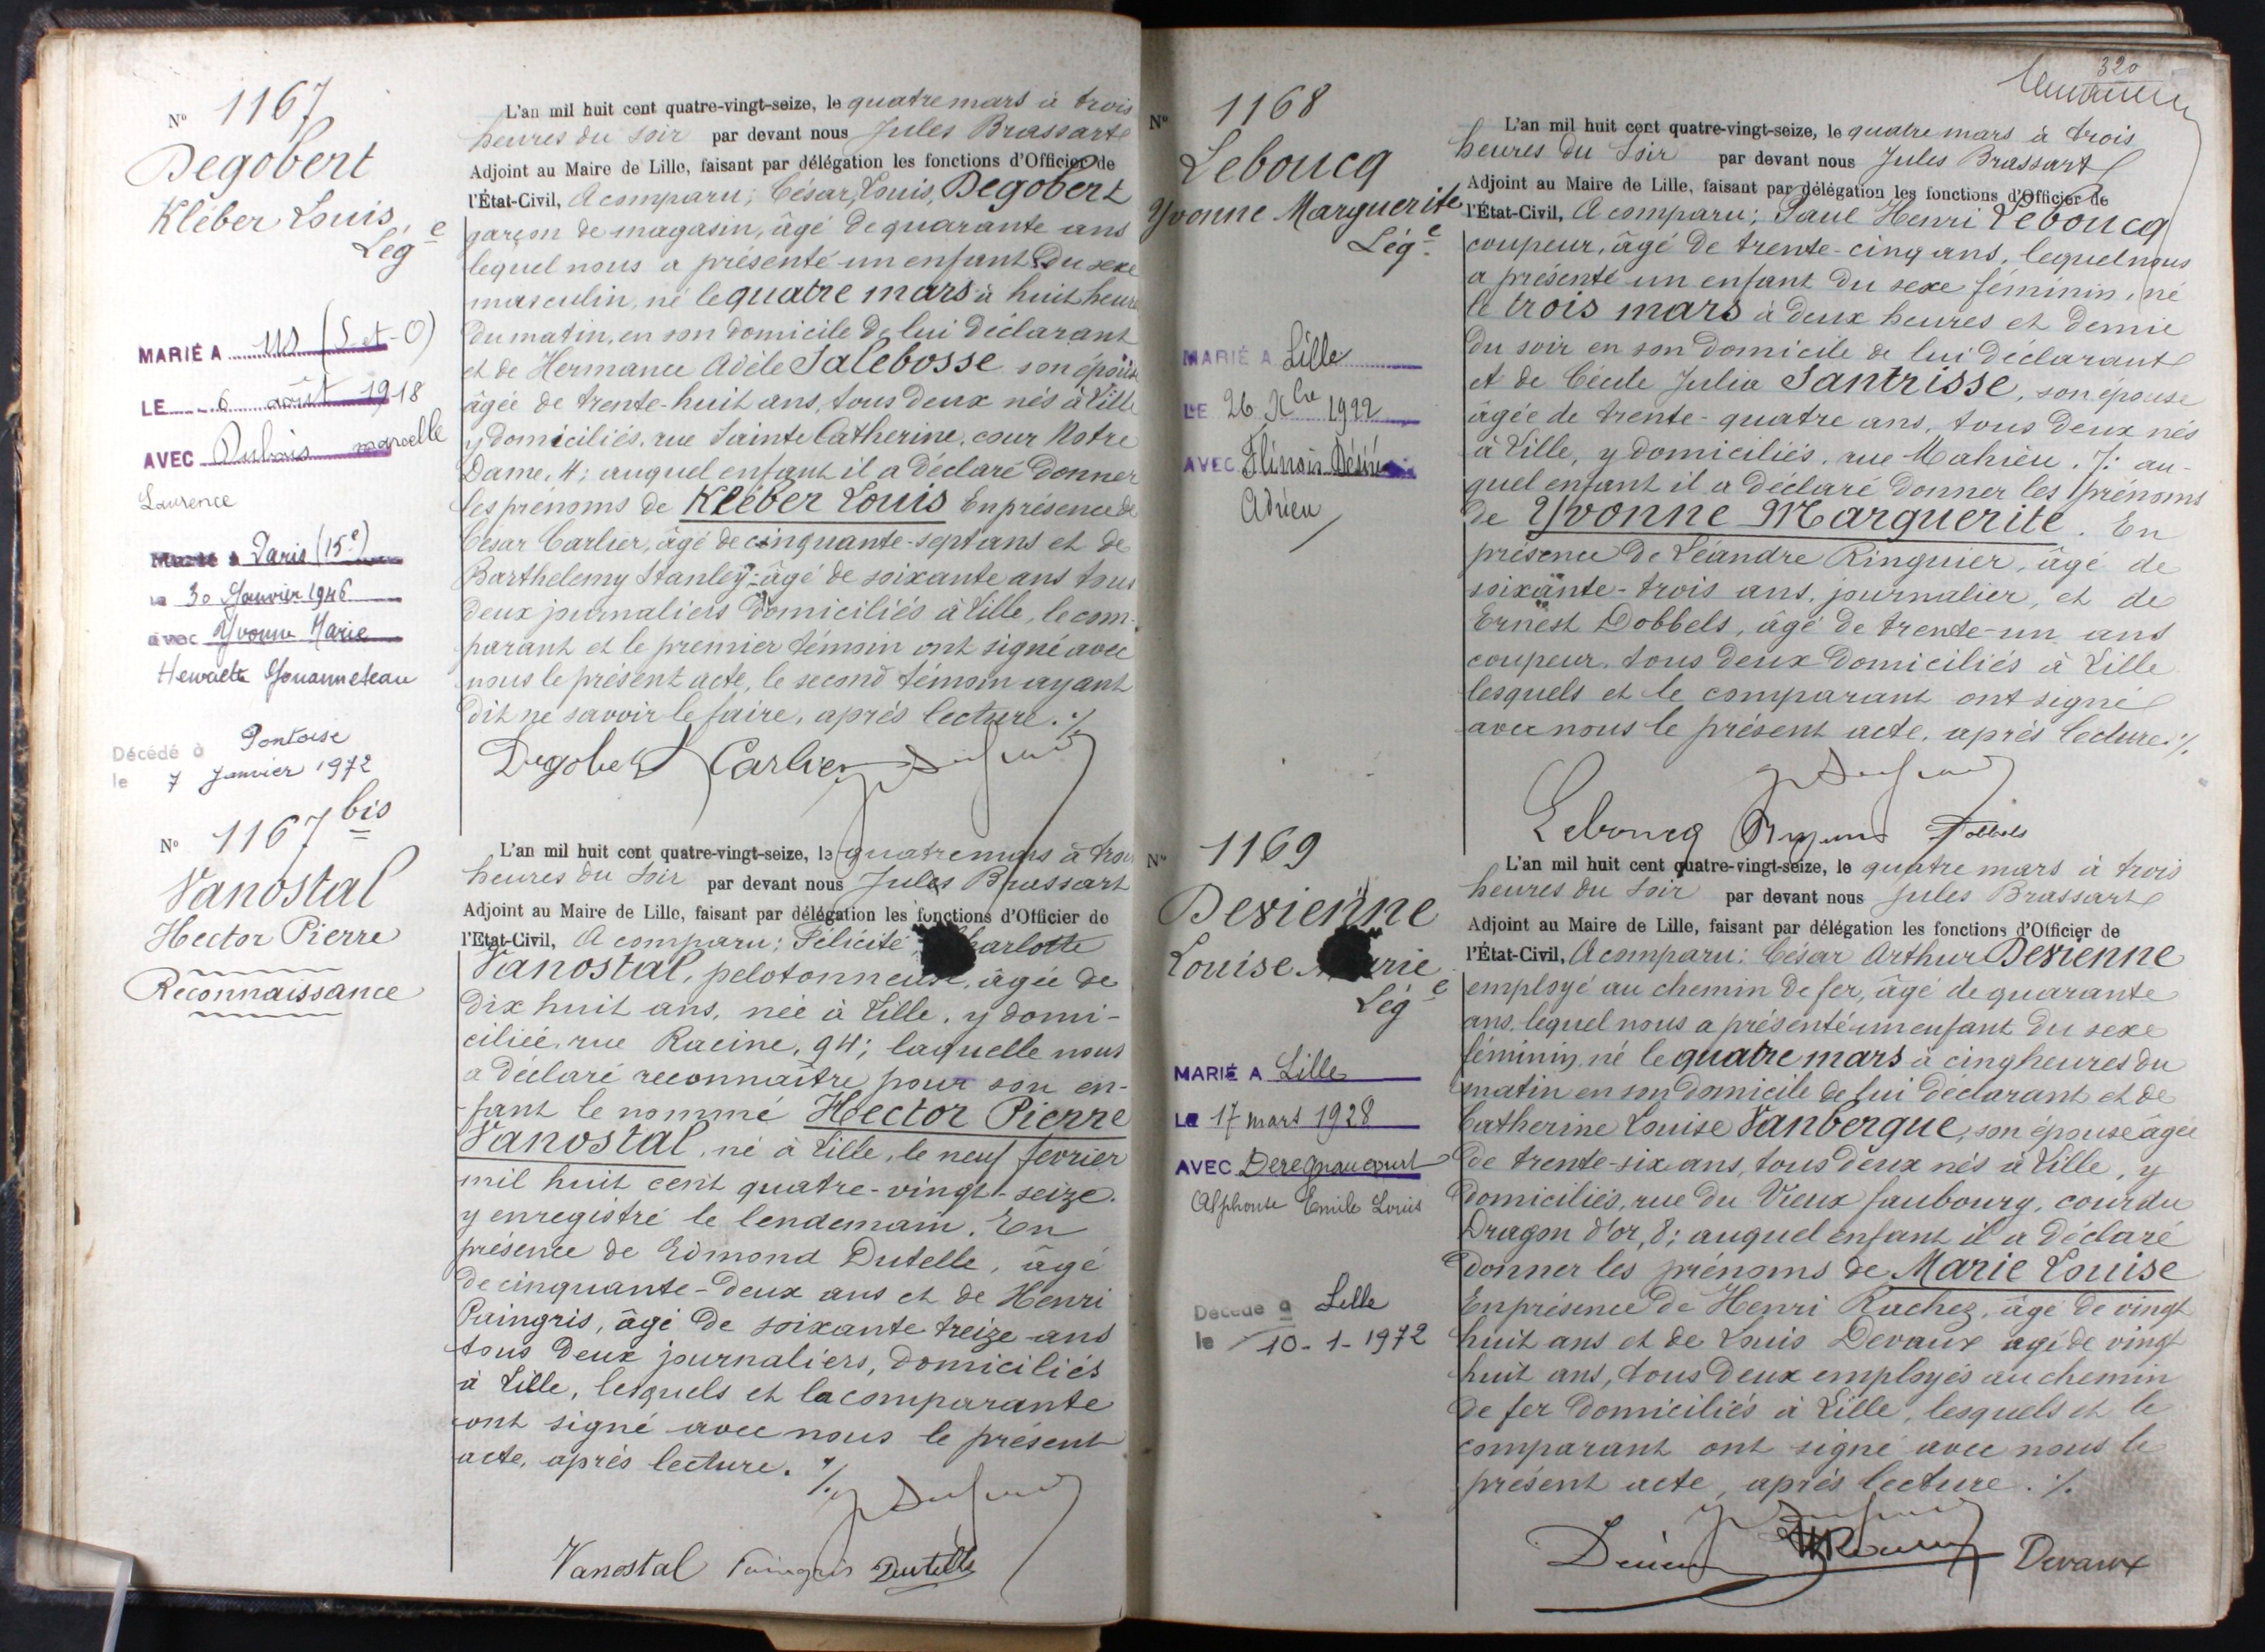 Nº 1167
Degobert
Kléber Louis
Lége
MARIÉ A Us (S-et-O)
LE 6 août 1918
AVEC Dubois marcelle
Laurence
Marié à Paris (15e)
le 30 Janvier 1946
avec Yvonne Marie
Henriette Jouanneteau
Décédé à Pontoise
le 7 Janvier 1972
L'an mil huit cent quatre-vingt-seize, le quatre mars à trois
heures du soir par devant nous Jules Brassart
Adjoint au Maire de Lille, faisant par délégation les fonctions d'Officier de
l'État-Civil, A comparu; César, Louis, Degobert
garçon de magasin, âgé de quarante ans
lequel nous a présenté un enfant du sexe
masculin, né le quatre mars à huit heures
du matin, en son domicile de lui déclarant
et de Hermance Adèle Salebosse son épouse
âgée de trente-huit ans, tous deux nés à Lille
y domiciliés, rue Sainte Catherine, cour Notre
Dame, 4; auquel enfant il a déclaré donner
les prénoms de Kléber Louis En présence de
César Carlier, âgé de cinquante-sept ans et de
Barthelemy Stanley âgé de soixante ans tous
deux journaliers domiciliés à Lille, le com-
parant et le premier témoin ont signé avec
nous le présent acte, le second témoin ayant
dit ne savoir le faire, après lecture. ./.
Degobert Carlier
Nº 1167 bis
Vanostal
Hector Pierre
Reconnaissance
L'an mil huit cent quatre-vingt-seize, le quatre mars à trois
heures du soir par devant nous Jules Brassart
Adjoint au Maire de Lille, faisant par délégation les fonctions d'Officier de
l'État-Civil, A comparu; Félicité Charlotte
Vanostal, pelotonneuse, âgée de
dix huit ans, née à Lille, y domi-
ciliée, rue Racine, 94; laquelle nous
a déclaré reconnaître pour son en-
-fant le nommé Hector Pierre
Vanostal, né à Lille, le neuf février
mil huit cent quatre-vingt-seize.
y enregistré le lendemain. En
présence de Edmond Dutelle, âgé
de cinquante-deux ans et de Henri
Paingris, âgé de soixante treize ans
tous deux journaliers, domiciliés
à Lille, lesquels et la comparante
ont signé avec nous le présent
acte, après lecture. ./.
Vanostal Paingris Dutelle
320
Nº 1168
Leboucq
Yvonne Marguerite
Lége
MARIÉ A Lille
LE 26 Xbre 1922
AVEC Flinois Désiré
Adrien
L'an mil huit cent quatre-vingt-seize, le quatre mars à trois
heures du soir par devant nous Jules Brassart
Adjoint au Maire de Lille, faisant par délégation les fonctions d'Officier de
l'État-Civil, A comparu; Paul Henri Leboucq
coupeur, âgé de trente-cinq ans, lequel nous
a présenté un enfant du sexe féminin, né
le trois mars à deux heures et demie
du soir en son domicile de lui déclarant
et de Cécile Julia Santrisse, son épouse
âgée de trente-quatre ans, tous deux nés
à Lille, y domiciliés, rue Mahieu, 7; au-
quel enfant il a déclaré donner les prénoms
de Yvonne Marguerite. En
présence de Léandre Ringuier, âgé de
soixante-trois ans, journalier, et de
Ernest Dobbels, âgé de trente-un ans
coupeur, tous deux domiciliés à Lille
lesquels et le comparant ont signé
avec nous le présent acte, après lecture ./.
Leboucq Dobbels
Nº 1169
Devienne
Louise Marie
Lége
MARIÉ A Lille
LE 17 mars 1928
AVEC Deregnaucourt
Alphonse Emile Louis
Décédé à Lille
le 10-1-1972
L'an mil huit cent quatre-vingt-seize, le quatre mars à trois
heures du soir par devant nous Jules Brassart
Adjoint au Maire de Lille, faisant par délégation les fonctions d'Officier de
l'État-Civil, A comparu; César Arthur Devienne
employé au chemin de fer, âgé de quarante
ans, lequel nous a présenté un enfant du sexe
féminin, né le quatre mars à cinq heures du
matin en son domicile de lui déclarant et de
Catherine Louise Vanbergue, son épouse âgée
de trente-six ans, tous deux nés à Lille, y
domiciliés, rue du Vieux faubourg, cour du
Dragon d'or, 8; auquel enfant il a déclaré
donner les prénoms de Marie Louise
En présence de Henri Rachez, âgé de vingt
huit ans et de Louis Devaux âgé de vingt
huit ans, tous deux employés au chemin
de fer domiciliés à Lille, lesquels et le
comparant ont signé avec nous le
présent acte, après lecture. ./.
Devaux